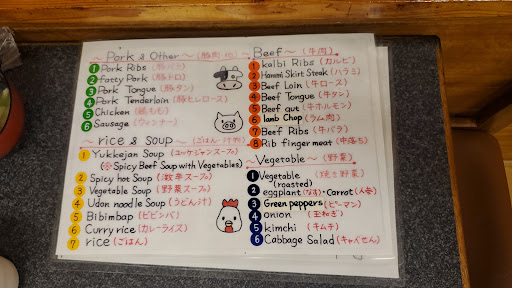 ~ Pork & Other ~ (豚肉・他)
1 Pork Ribs (豚バラ)
2 fatty Pork (豚トロ)
3 Pork Tongue (豚タン)
4 Pork Tenderloin (豚ヒレロース)
5 Chicken (鶏もも)
6 Sausage (ウィンナー)
~ rice & Soup ~ (ごはん・汁物)
1 Yukkejan Soup (ユッケジャンスープ)
(※ Spicy Beef Soup with Vegetables)
2 Spicy hot Soup (辛スープ)
3 Vegetable Soup (野菜スープ)
4 Udon noodle Soup (うどん汁)
5 Bibimbap (ビビンバ)
6 Curry rice (カレーライス)
7 rice (ごはん)
~ Beef ~ (牛肉)
1 kalbi Ribs (カルビ)
2 Harami Skirt Steak (ハラミ)
3 Beef Loin (牛ロース)
4 Beef Tongue (牛タン)
5 Beef gut (牛ホルモン)
6 lamb Chop (ラム肉)
7 Beef Ribs (牛バラ)
8 Rib finger meat (中落ち)
~ Vegetable ~ (野菜)
1 Vegetable (焼き野菜)
(roasted)
2 eggplant (なす)・Carrot (人参)
3 Green peppers (ピーマン)
4 onion (玉ねぎ)
5 kimchi (キムチ)
6 Cabbage Salad (キャベせん)